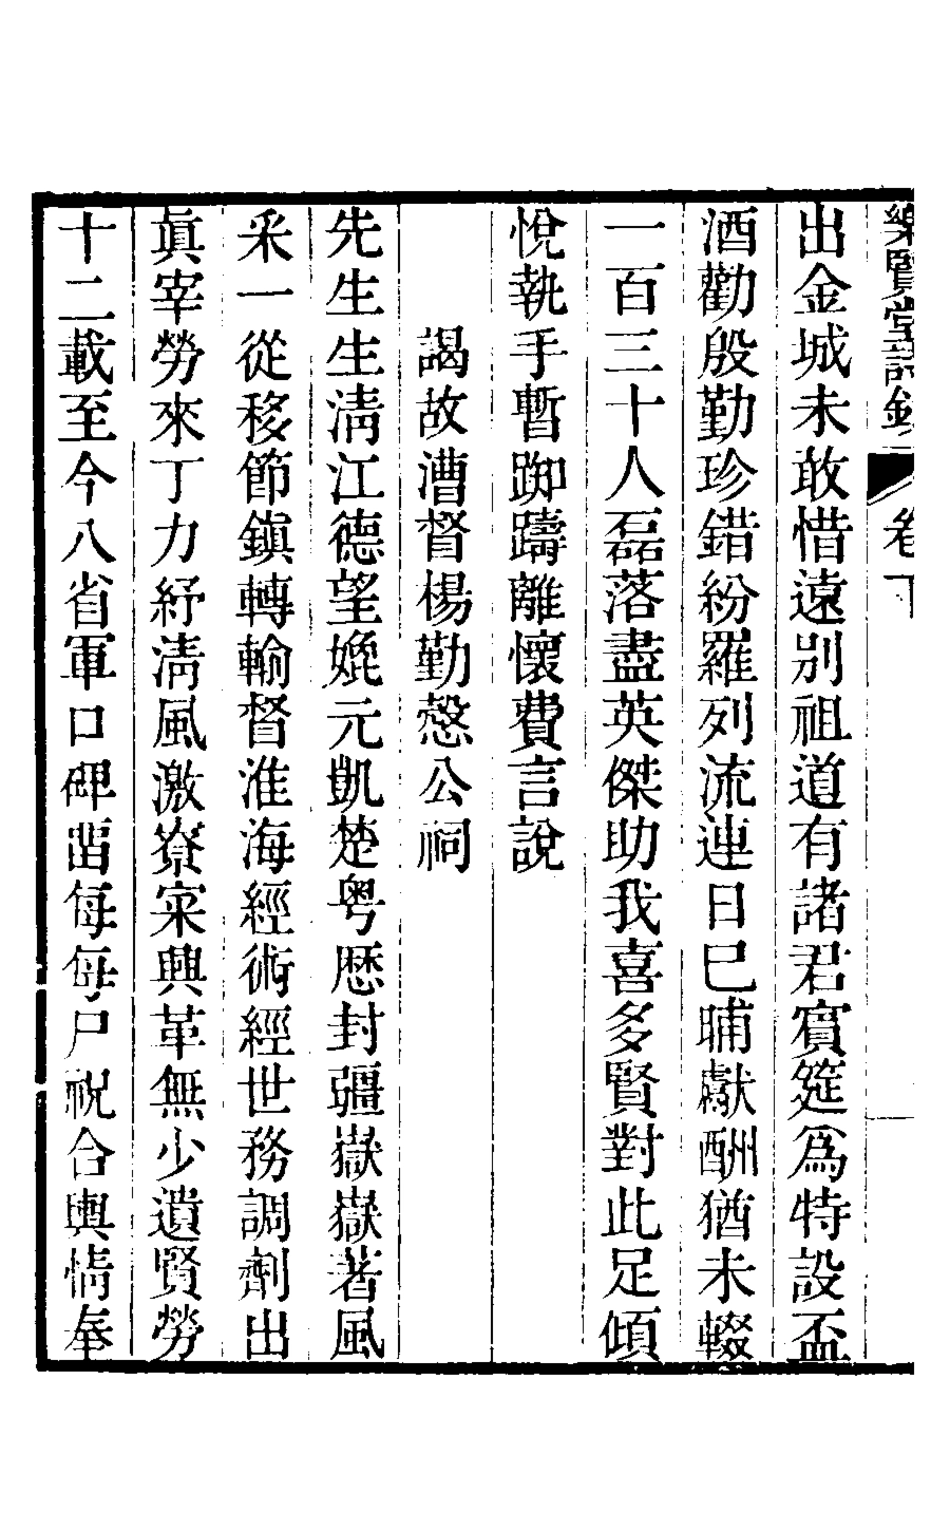 樂賢堂詩鈔 卷下
出金城未敢惜遠別祖道有諸君賓筵爲特設盃
酒勸殷勤珍錯紛羅列流連日巳晡獻酬猶未輟
一百三十人磊落盡英傑助我喜多賢對此足傾
悅執手暫踟躊離懷費言說
謁故漕督楊勤愨公祠
先生生淸江德望娩元凱楚粤歷封疆嶽嶽著風
采一從移節鎭轉輸督淮海經術經世務調劑出
眞宰勞來丁力紓淸風激寮寀興革無少遺賢勞
十二載至今八省軍口碑畱每每戶祝合輿情奉